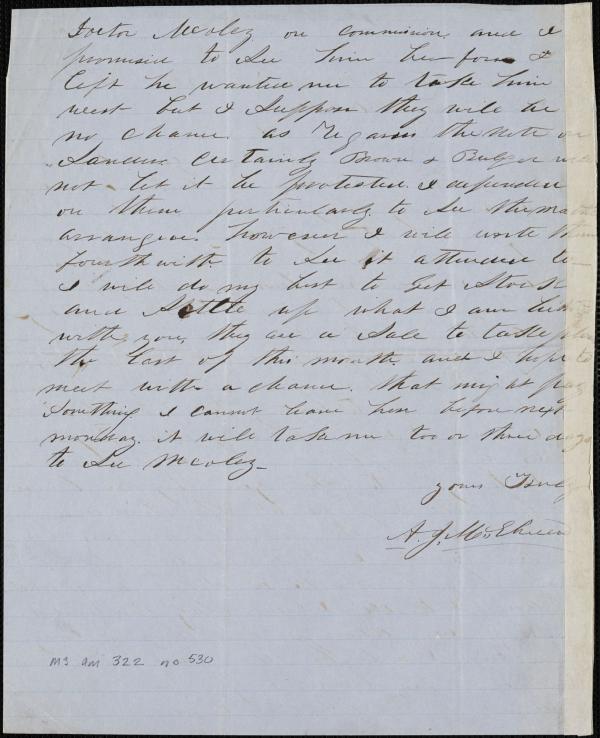 Doctor McColey on commission, and I
promised to See him before I
left he wanted me to take him
west but I Suppose they will be
no chance. as regards the note on
Sanders Certainly Brown & Bulger will
not let it be protested. I depended
on them particularly to See the matter
arranged. however I will write them
fourthwith to See it attended to
I will do my best to get Stock
and Settle up what I am
with you, they are a Sale to take place
the last of this month and I hope to
meet with a chance. that might pay
Something I cannot leave here before next
monday. it will take me too or three days
to See McColey_
yours Truly
A. J. McElveen
MS Am 322 no 530